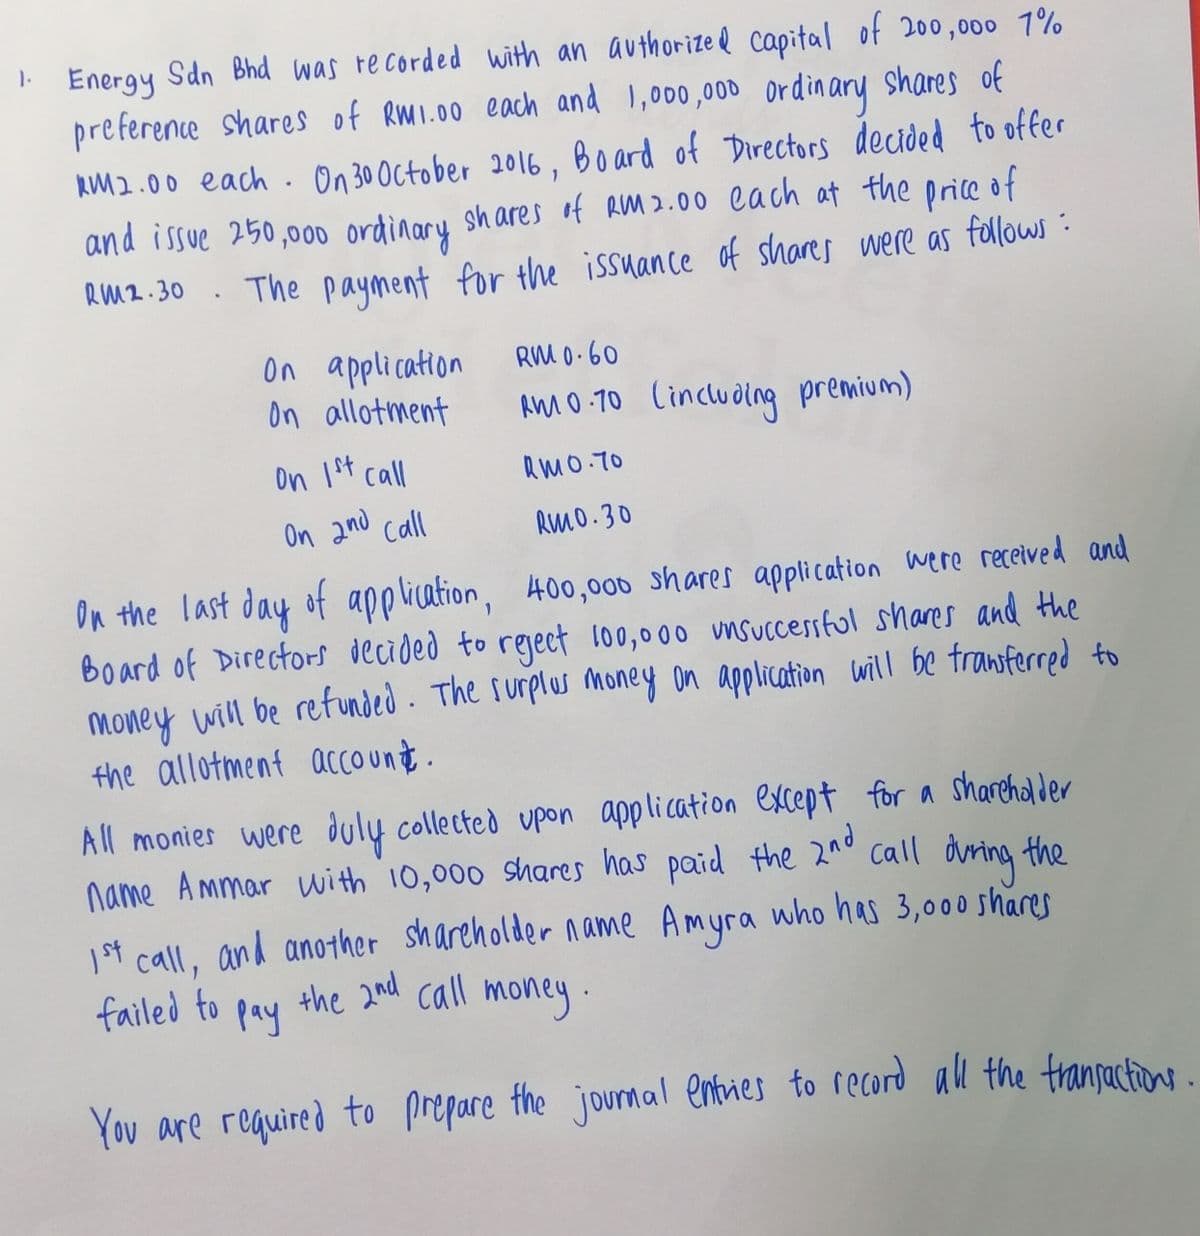 1. Energy Sdn Bhd was recorded with an authorized capital of 200,000 7%
preference shares of RM1.00 each and 1,000,000 ordinary shares of
RM2.00 each. On 30 October 2016, Board of Directors decided to offer
and issue 250,000 ordinary shares of RM2.00 each at the price of
RM2.30. The payment for the issuance of shares were as follows:
On application RM0.60
On allotment RM0.70 (including premium)
On 1st call RM0.70
On 2nd call RM0.30
On the last day of application, 400,000 shares application were received and
Board of Directors decided to reject 100,000 unsuccessful shares and the
money will be refunded. The surplus money on application will be transferred to
the allotment account.
All monies were duly collected upon application except for a shareholder
name Ammar with 10,000 shares has paid the 2nd call during the
1st call, and another shareholder name Amyra who has 3,000 shares
failed to pay the 2nd call money.
You are required to prepare the journal entries to record all the transactions.